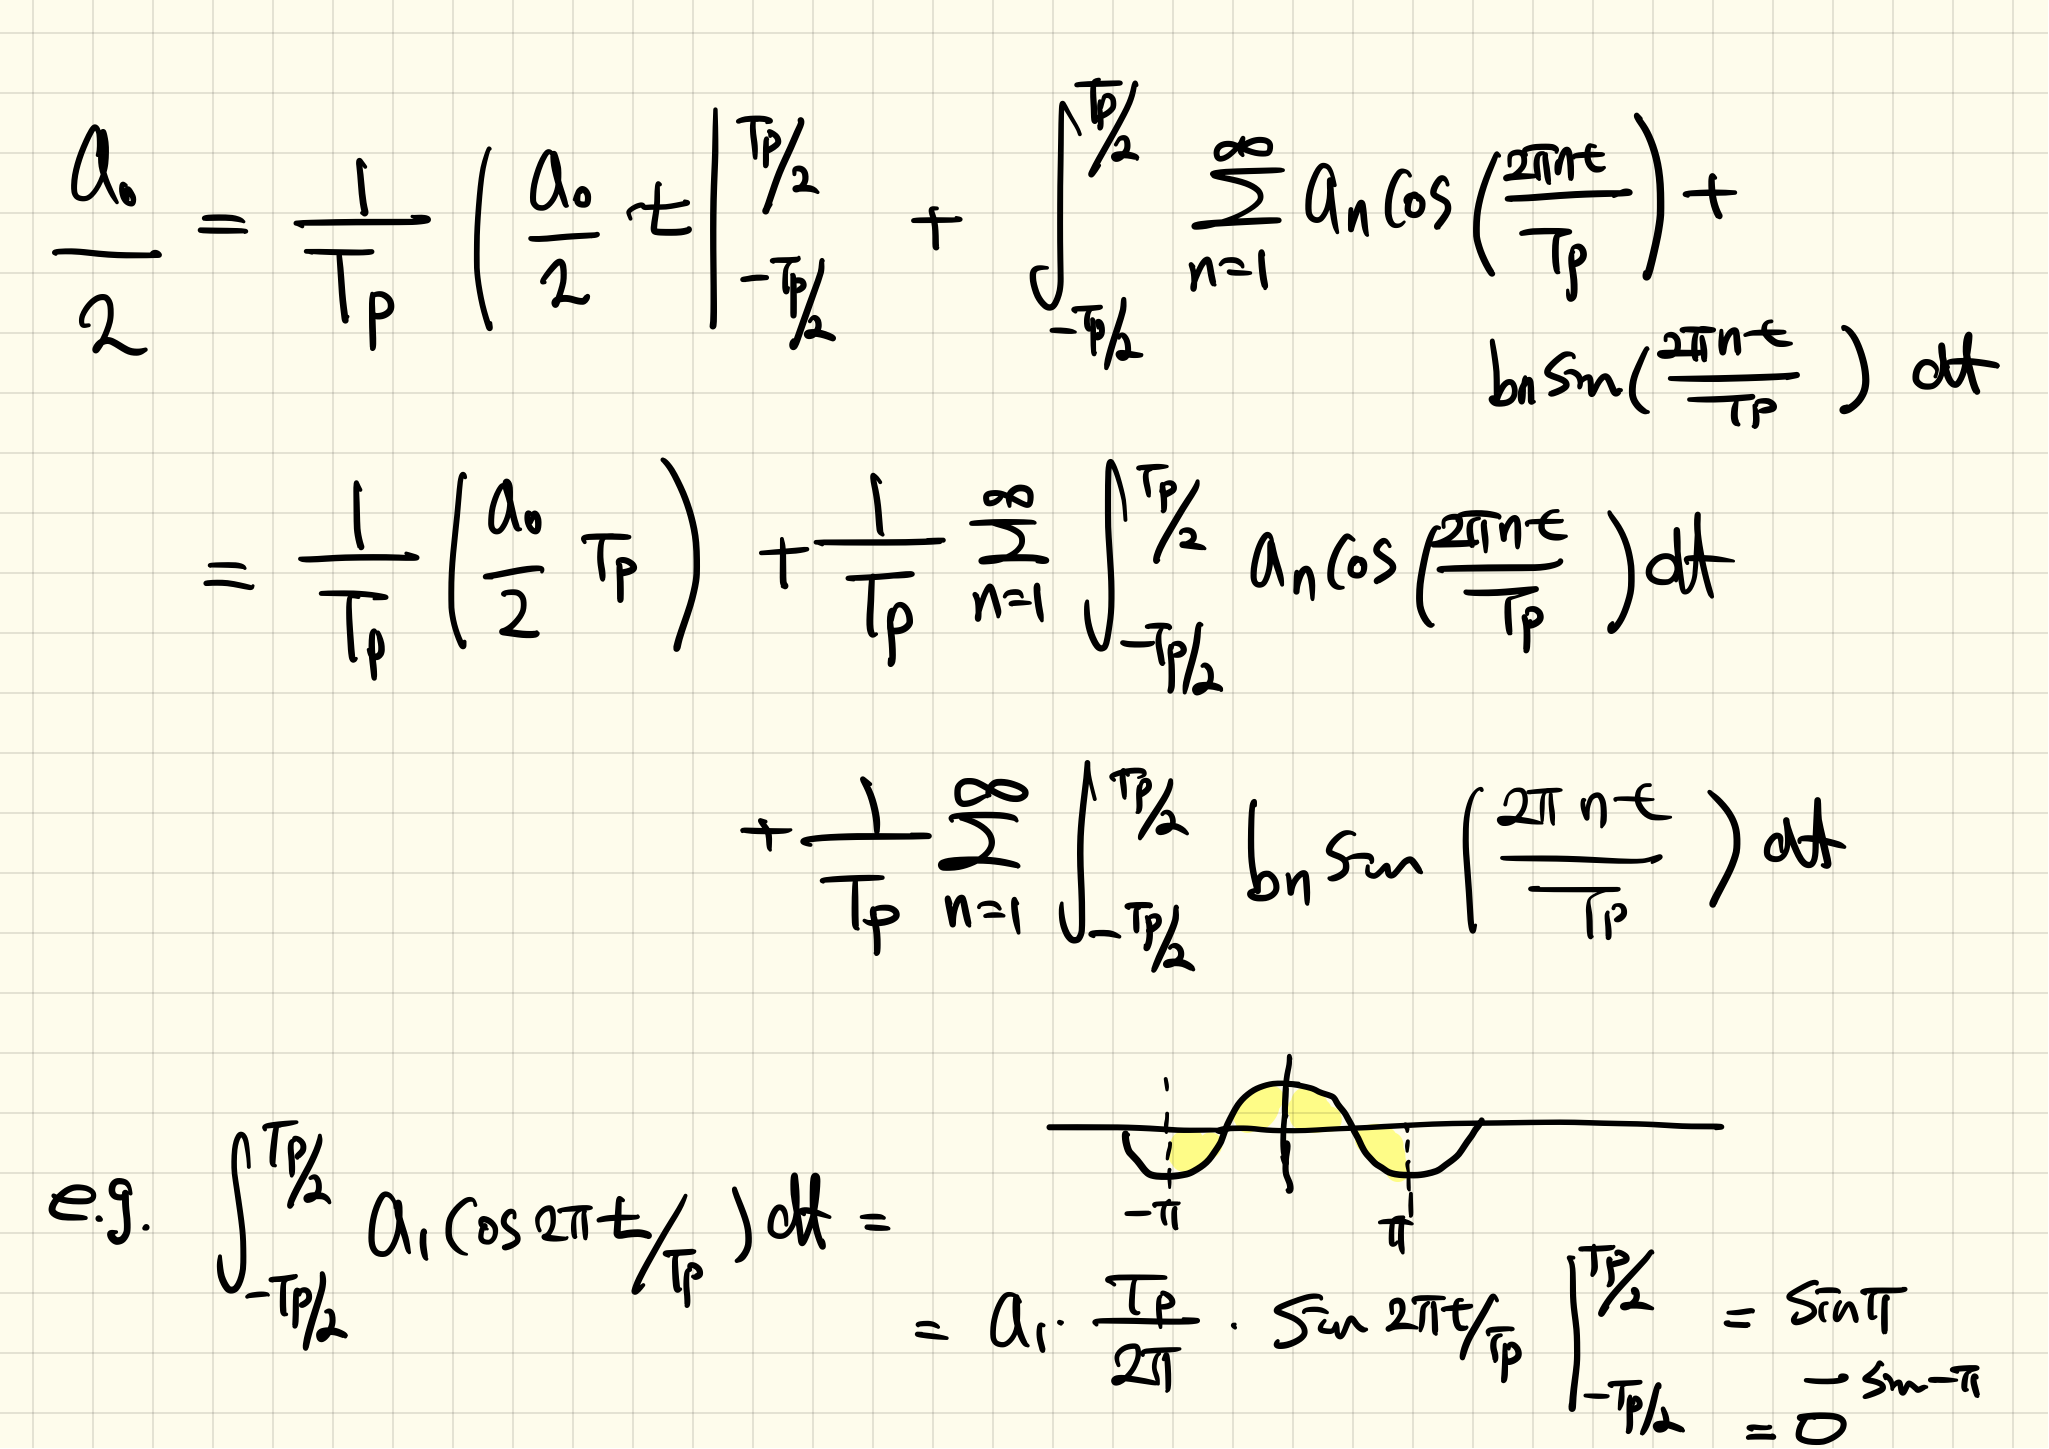 a₀/2 = 1/Tp ( a₀/2 t |_{-Tp/2}^{Tp/2} + ∫_{-Tp/2}^{Tp/2} ∑_{n=1}^{∞} aₙ cos(2πnt/Tp) +
bₙ sin(2πnt/Tp) dt
= 1/Tp ( a₀/2 Tp ) + 1/Tp ∑_{n=1}^{∞} ∫_{-Tp/2}^{Tp/2} aₙ cos(2πnt/Tp) dt
+ 1/Tp ∑_{n=1}^{∞} ∫_{-Tp/2}^{Tp/2} bₙ sin(2πnt/Tp) dt
-π π
e.g. ∫_{-Tp/2}^{Tp/2} a₁ (cos 2πt/Tp) dt =
= a₁ · Tp/2π · sin 2πt/Tp |_{-Tp/2}^{Tp/2} = sin π
- sin -π
= 0